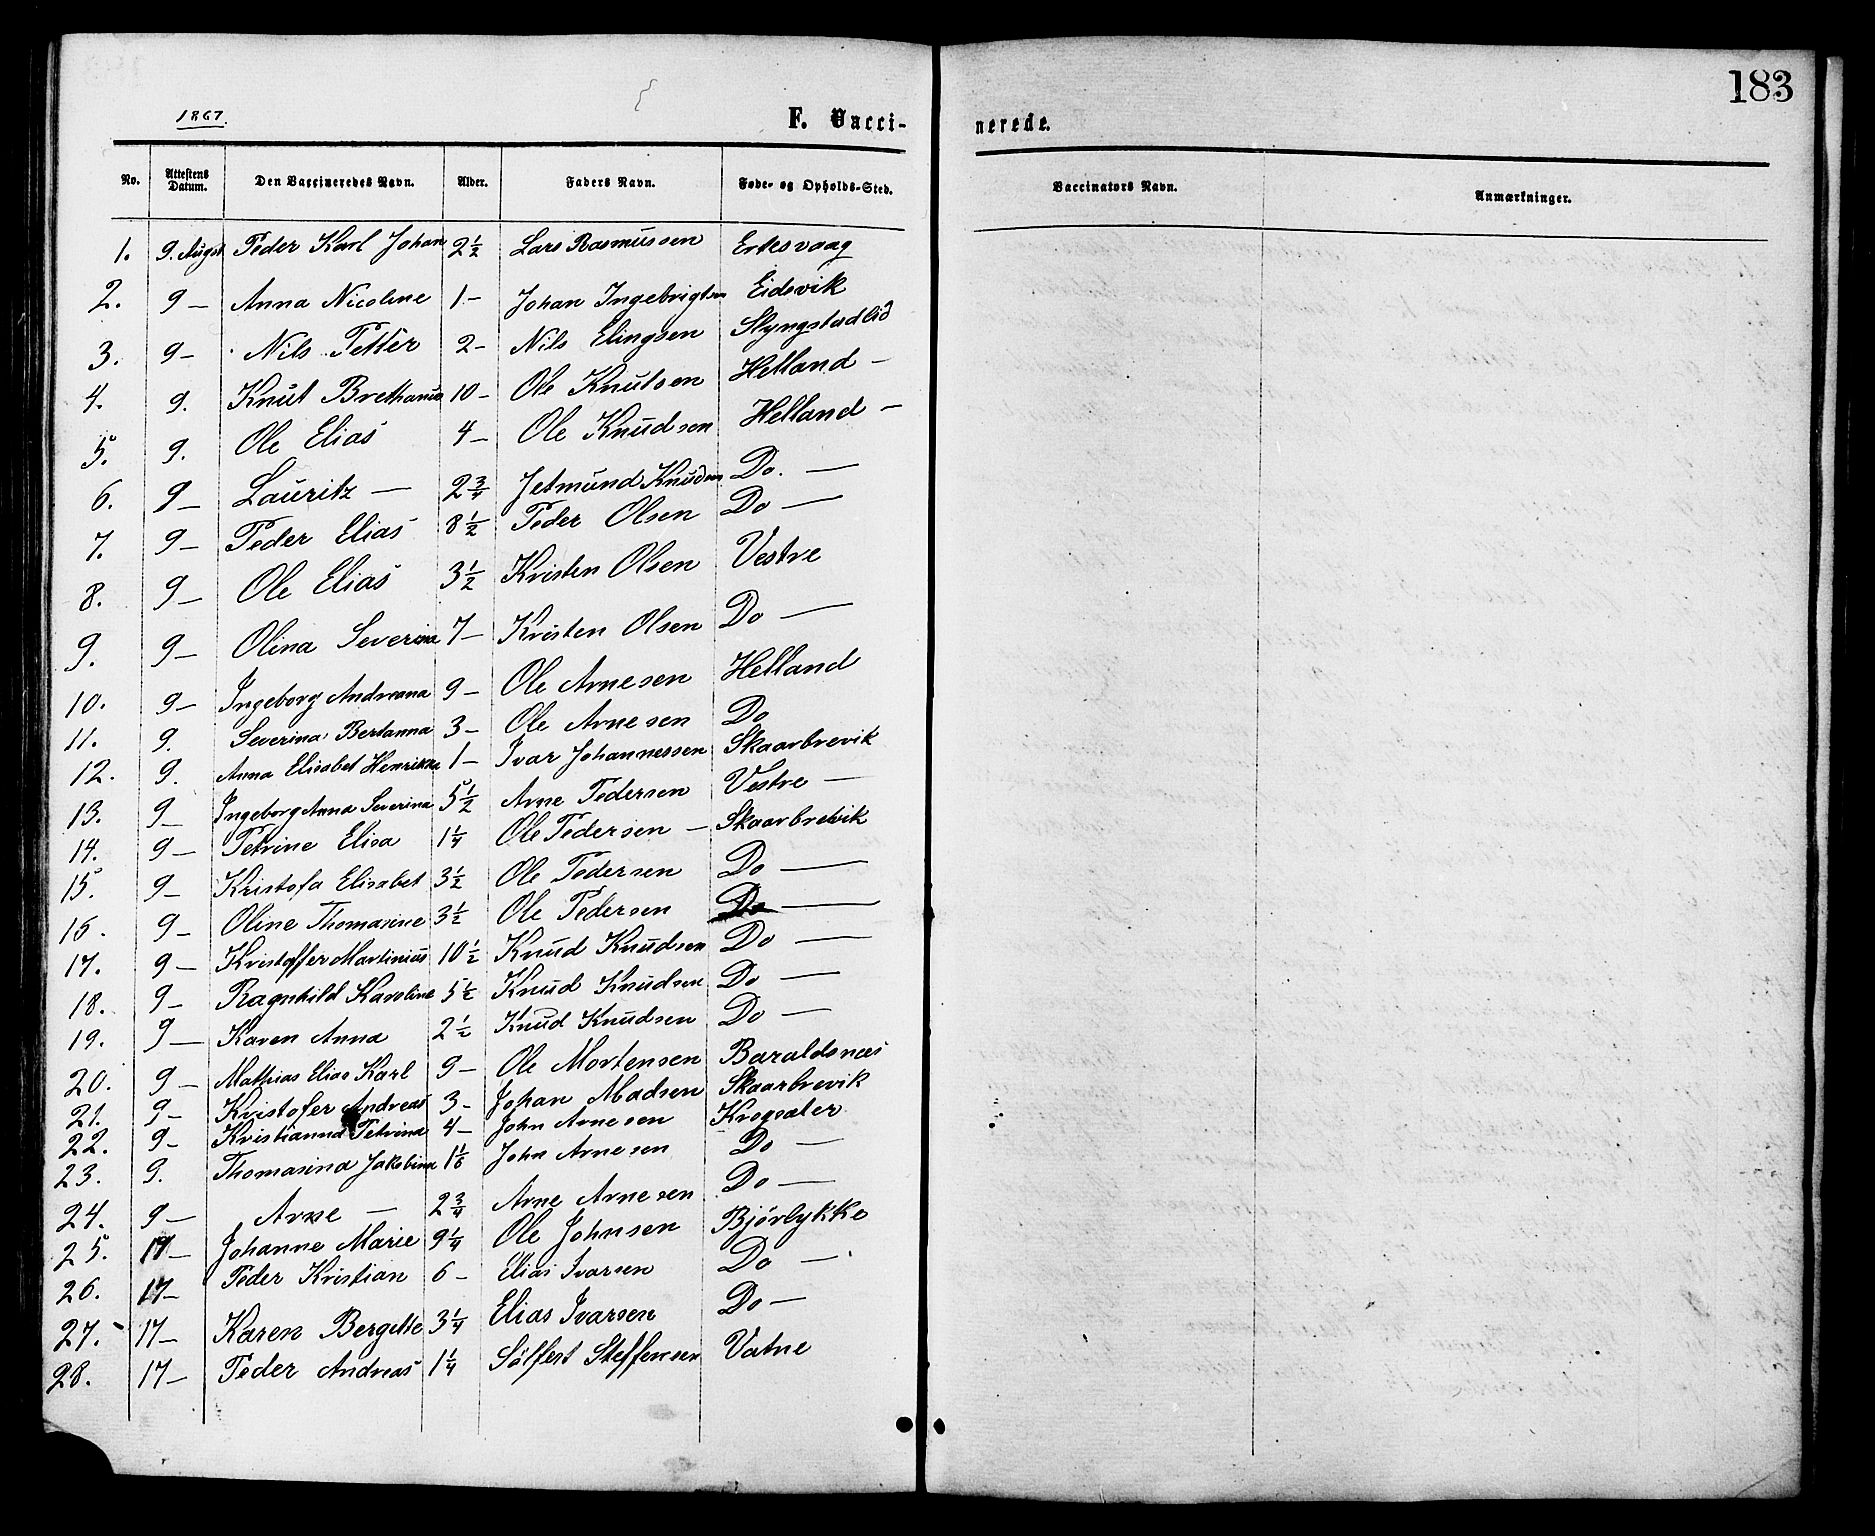 183
1867.
F. Vacci- nerede.
No. Attestens Datum. Den Vaccineredes Navn. Alder. Faders Navn. Føde- og Opholds-Sted. Vaccinators Navn. Anmærkninger.
1. 9. Augst Peder Karl Johan 2 1/2 Lars Rasmussen Erkesvaag
2. 9 — Anna Nicoline 1 - Johan Ingebrigtsen Eidsvik
3. 9 - Nils Petter 2 - Nils Elingsen Slyngstadlid
4. 9. Knut Brethanus 10 - Ole Knutsen Helland -
5. 9. Ole Elias 4 - Ole Knudsen Helland -
6. 9 - Lauritz — 2 3/4 Jetmund Knudsen Do. —
7. 9 - Peder Elias 8 1/2 Peder Olsen Do —
8. 9 - Ole Elias 3 1/2 Kristen Olsen Vestre
9. 9 - Olina Severina 7 - Kristen Olsen Do —
10. 9 - Ingeborg Andreana 9 - Ole Arnesen Helland
11. 9. Severina Bertanna 3 - Ole Arnesen Do
12. 9. Anna Elisabet Henrikka 1 - Ivar Johannessen Skaarbrevik
13. 9 - Ingeborg Anna Severina 5 1/2 Arne Pedersen Vestre —
14. 9 - Petrine Elisa 1 1/4 Ole Pedersen - Skaarbrevik
15. 9 - Kristofa Elisabet 3 1/2 Ole Pedersen Do —
16. 9 - Oline Thomasine 3 1/2 Ole Pedersen Do —
17. 9 - Kristoffer Martinius 10 1/2 Knud Knudsen Do —
18. 9 - Ragnhild Karoline 5 1/2 Knud Knudsen Do —
19. 9 — Karen Anna 2 1/2 Knud Knudsen Do —
20. 9 - Mathias Elias Karl 9 - Ole Mortensen Baraldsnæs
21. 9 - Kristofer Andreas 3 - Johan Madsen Skaarbrevik
22. 9 - Kristianna Petrina 4 - John Arnesen Krogsæter
23. 9. Thomasina Jakobina 1 1/6 John Arnesen Do —
24. 9 - Arne — 2 3/4 Arne Arnesen Do —
25. 17 - Johanne Marie 9 1/4 Ole Johnsen Bjørlykke
26. 17 - Peder Kristian 6 - Elias Ivarsen Do —
27. 17 - Karen Bergitte 3 1/4 Elias Ivarsen Do —
28. 17 - Peder Andreas 1 1/4 Sölfest Steffensen Vatne